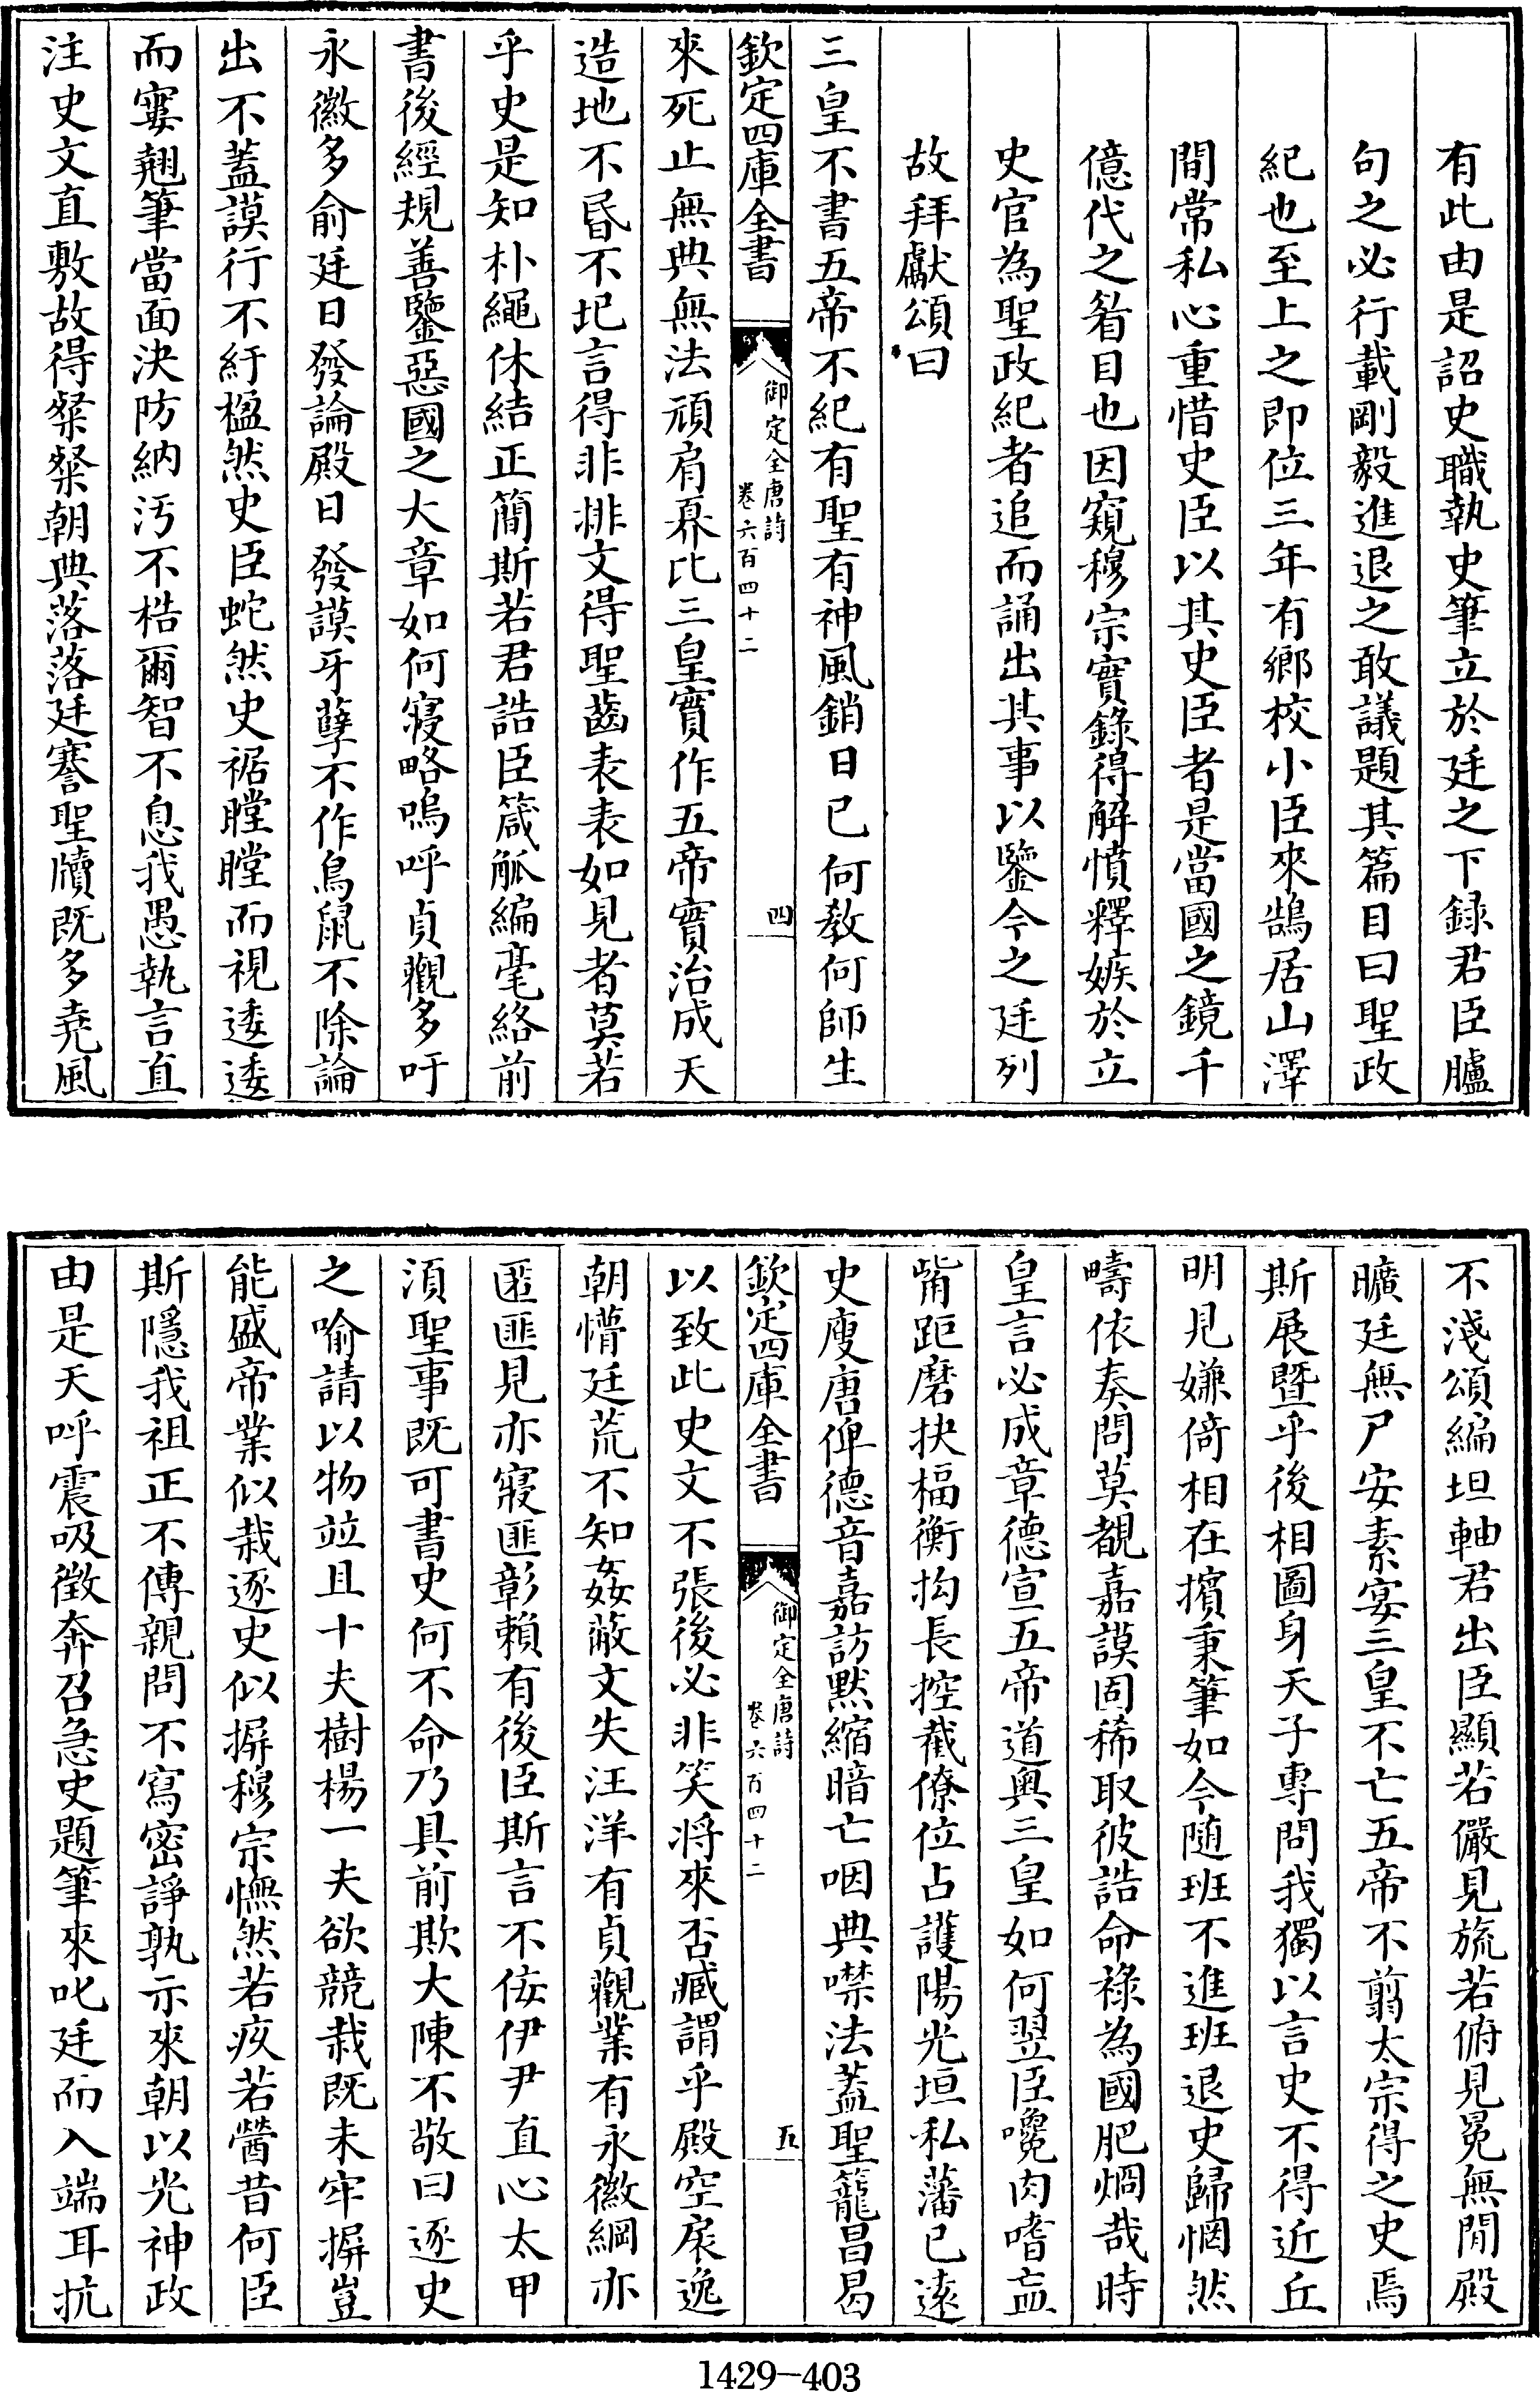 有此由是詔史職執史筆立於廷之下録君臣臚
句之必行載剛毅進退之敢議題其篇目曰聖政
紀也至上之即位三年有鄉校小臣來鵠居山澤
間常私心重惜史臣以其史臣者是當國之鏡千
億代之眉目也因窺穆宗實錄得解憤釋嫉於立
史官為聖政紀者追而誦出其事以鑒今之廷列
故拜獻頌曰
三皇不書五帝不紀有聖有神風銷日已何教何師生
欽定四庫全書
御定全唐詩
卷六百四十二
四
來死止無典無法頑肩奡比三皇實作五帝實治成天
造地不昬不圯言得非排文得聖齒表表如見者莫若
乎史是知朴繩休結正簡斯若君誥臣箴觚編毫絡前
書後經規善鑒惡國之大章如何寢略嗚呼貞觀多吁
永徽多俞廷日發論殿日發謨牙孽不作鳥鼠不除論
出不蓋謨行不紆楹然史臣蛇然史裾瞠瞠而視逶逶
而寠翹筆當面決防納汚不梏爾智不息我愚執言直
注史文直敷故得粲粲朝典落落廷謇聖牘既多堯風
不淺頌編坦軸君出臣顯若儼見旒若俯見冕無閒殿
曠廷無尸安素宴三皇不亡五帝不翦太宗得之史焉
斯展暨乎後相圖身天子專問我獨以言史不得近丘
明見嫌倚相在擯秉筆如今随班不進班退史歸惘然
疇依奏問莫覩嘉謨固稀取彼誥命禄為國肥惘哉時
皇言必成章德宣五帝道奥三皇如何翌臣嚵肉嗜衁
觜距磨抉楅衡拘長控截僚位占護陽光垣私藩已遠
史廋唐俾德音嘉訪默縮暗亡咽典噤法蓋聖籠昌曷
欽定四庫全書
御定全唐詩
卷六百四十二
五
以致此史文不張後必非笑將來否臧謂乎殿空扆逸
朝懵廷荒不知姦蔽文失汪洋有貞觀業有永徽綱亦
匿匪見亦寢匪彰賴有後臣斯言不佞伊尹直心太甲
湏聖事既可書史何不命乃具前欺大陳不敬曰逐史
之喻請以物並且十夫樹楊一夫欲競栽既未牢摒豈
能盛帝業似栽逐史似摒穆宗憮然若疚若醟昔何臣
斯隱我祖正不傳親問不寫密諍孰示來朝以光神政
由是天呼震吸徵奔召急史題筆來叱廷而入端耳抗
1429-403